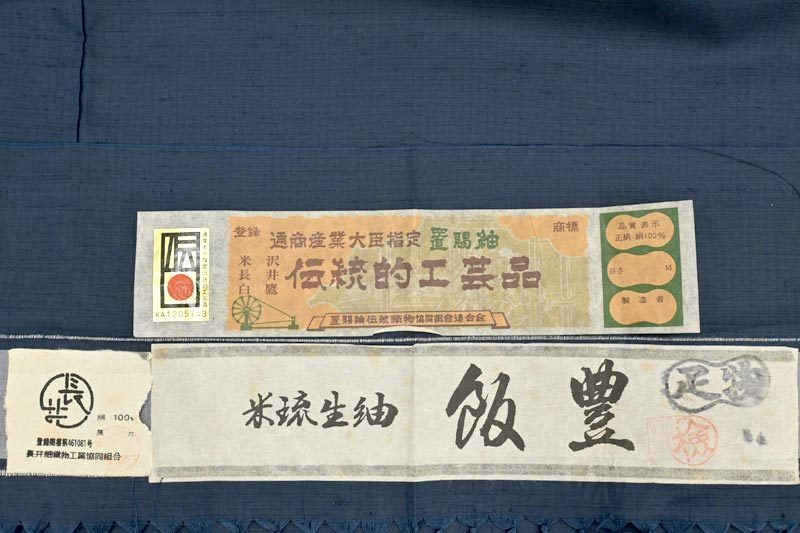 登録
通商産業大臣指定 置賜紬
商標
米沢
長井
白鷹
伝統的工芸品
置賜紬伝統織物協同組合連合会
品質表示
正絹 絹100%
長さ M
製造者
KA1205743
長井
絹 100%
登録商標第461081号
長井紬織物工業協同組合
米琉生紬
飯豊
検